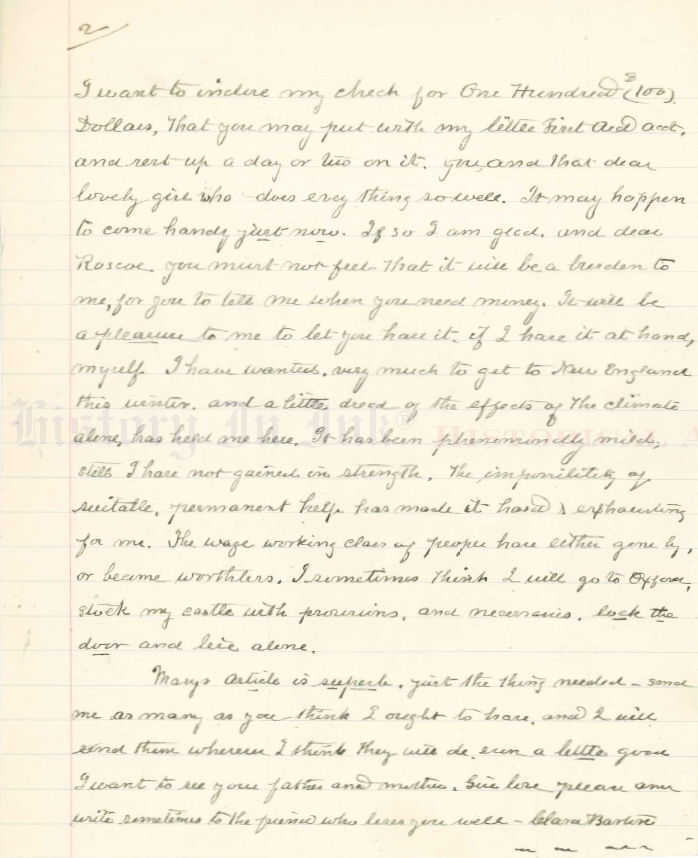 2
I want to inclose my check for One Hundred $(100).
Dollars, That you may put with my little First Aid acct,
and rest up a day or two on it. you, and that dear
lovely girl who does every thing so well. It may happen
to come handy just now. If so I am glad. and dear
Roscoe. you must not feel that it will be a burden to
me, for you to tell me when you need money. It will be
a pleasure to me to let you have it. if I have it at hand,
myself. I have wanted. very much to get to New England
this winter. and a little dread of the effects of the climate
alone, has held me here. It has been phenominaly mild,
still I have not gained in strength. The impossibility of
suitable, permanent help has made it hard & exhausting
for me. The wage working class of people have either gone by,
or become worthless. I sometimes think I will go to Oxford,
stock my castle with provisions, and necessaries. lock the
door and live alone.
Marys article is superb. just the thing needed - send
me as many as you think I ought to have, and I will
send them wherever I think they will do even a little good
I want to see your father and mother. Give love please and
write sometimes to the friend who loves you well - Clara Barton
History In Ink® HISTORICAL A